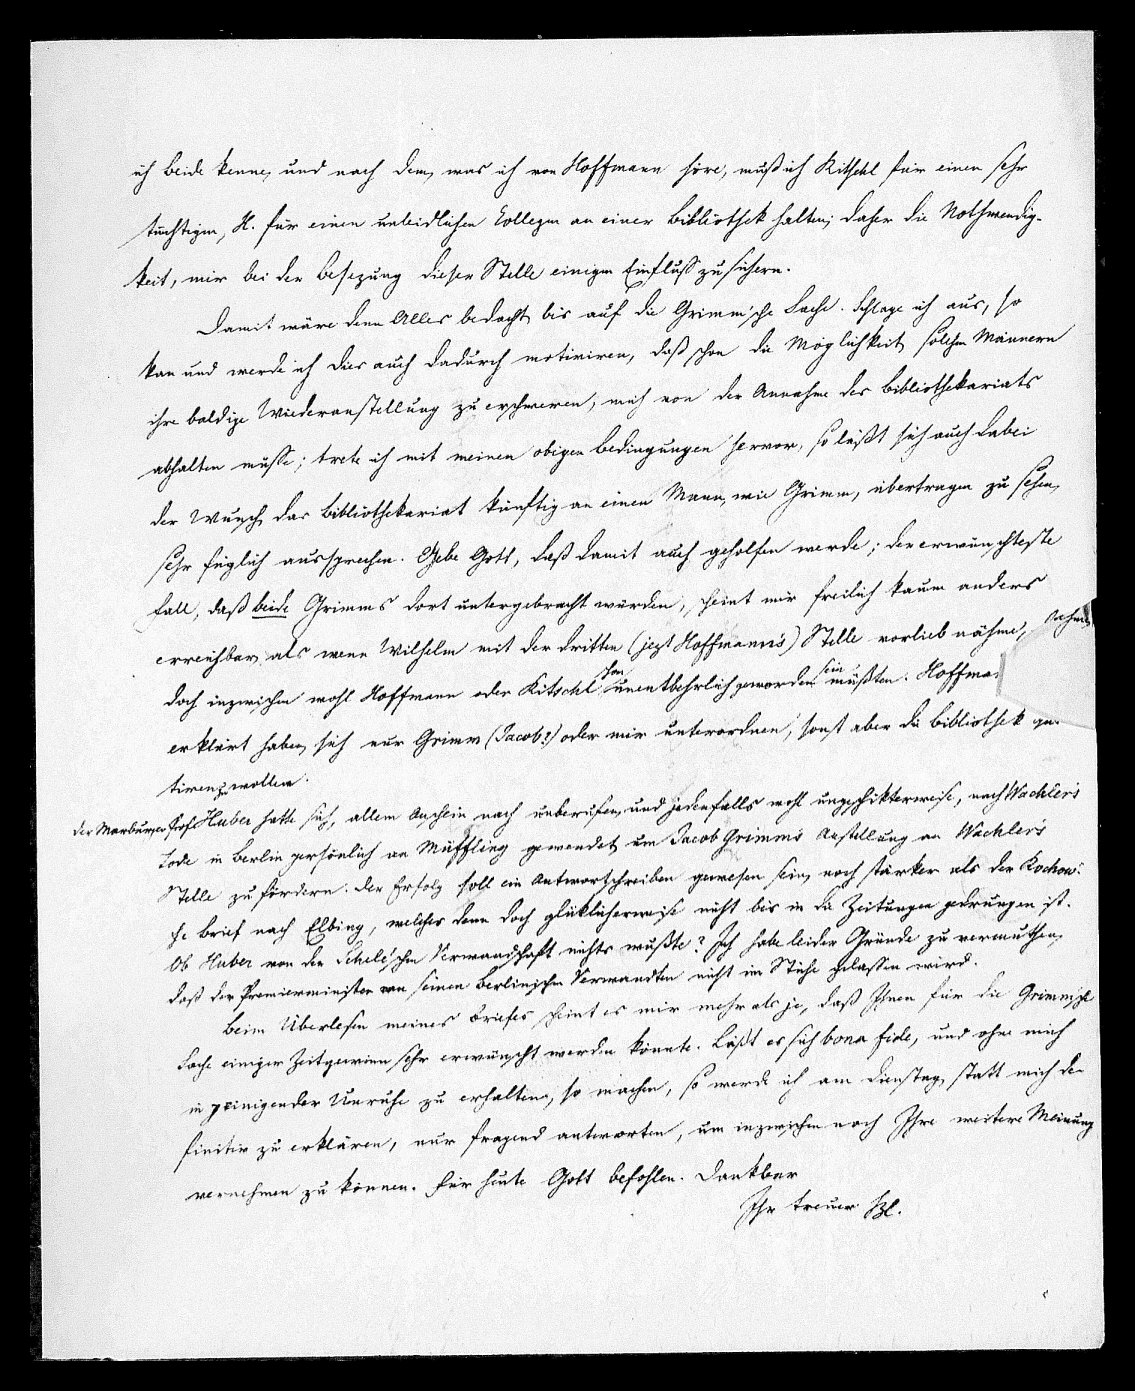 ich beide kenne, und nach dem, was ich von Hoffmann höre, muß ich Ritschl für einen sehr
tüchtigen, H. für einen unleidlichen Collegen an einer Bibliothek halten; daher die Nothwendig-
keit, mir bei der Besezung dieser Stelle einigen Einfluß zu sichern.
Damit wäre denn Alles bedacht bis auf die Grimm'sche Sache. Schlage ich aus, so
kan und werde ich dies auch dadurch motiviren, daß schon die Möglichkeit, solchen Männern
ihre baldige Wiederanstellung zu erschweren, mich von der Annahme des Bibliothekariats
abhalten müsse; trete ich mit meinen obigen Bedingungen hervor, so läßt sich auch dabei
der Wunsch, das Bibliothekariat künftig an einen Mann, wie Grimm, übertragen zu sehen,
sehr füglich aussprechen. Gebe Gott, daß damit auch geholfen werde; der erwünschteste
Fall, daß beide Grimms dort untergebracht würden, scheint mir freilich kaum anders
erreichbar, als wenn Wilhelm mit der dritten (jezt Hoffmann's) Stelle vorlieb nähme,
doch inzwischen wohl Hoffmann oder Ritschl schon unentbehrlich geworden sein müßten. Hoffma
erklärt haben, sich nur Grimm (Jacob?) oder mir unterordnen, sonst aber die Bibliothek qu-
tiren zu wollen.
Der Marburger Prof. Huber hatte sich, allem Anschein nach unberufen, und jedenfalls wohl ungeschikterweise, nach Wachler's
Tode in Berlin persönlich an Müffling gewendet um Jacob Grimm's Anstellung an Wachler's
Stelle zu fördern. Der Erfolg soll ein Antwortschreiben gewesen sein, noch stärker als der Rochow'-
sche Brief nach Elbing, welches denn doch glüklicherweise nicht bis in die Zeitungen gedrungen ist.
Ob Huber von der Schele'schen Verwandschaft nichts wußte? Ich habe leider Gründe zu vermuthen,
daß der Premierminister von seinen Berlinischen Verwandten nicht im Stiche gelassen wird.
Beim Überlesen meines Briefes scheint es mir mehr als je, daß Ihnen für die Grimm'sche
Sache einiger Zeitgewinn sehr erwünscht werden könnte. Läßt es sich bona fide, und ohne mich
in peinigender Unruhe zu erhalten, so machen, so werde ich am Dienstag, statt mich de-
finitiv zu erklären, nur fragend antworten, um inzwischen noch Ihre weitere Meinung
vernehmen zu können. Für heute Gott befohlen. Dankbar
Ihr treuer